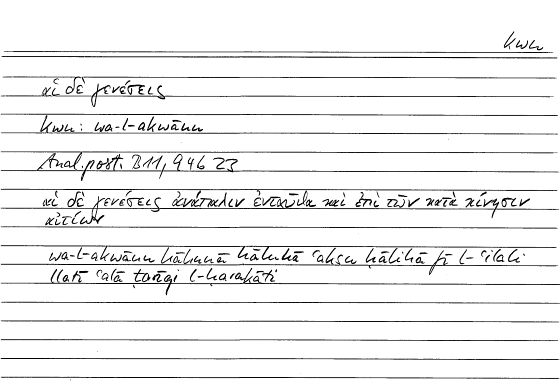 kwn
αἱ δὲ γενέσεις
kwn: wa-l-akwānu
Anal.post. B11, 94b 23
αἱ δὲ γενέσεις ἀνάπαλιν ἐνταῦθα καὶ ἐπὶ τῶν κατὰ κίνησιν
αἰτίων
wa-l-akwānu hāhunā ḥāluhā ʿaksu ḥālihā fī l-ʿilali
llatī ʿalā ṭarīqi l-ḥarakāti